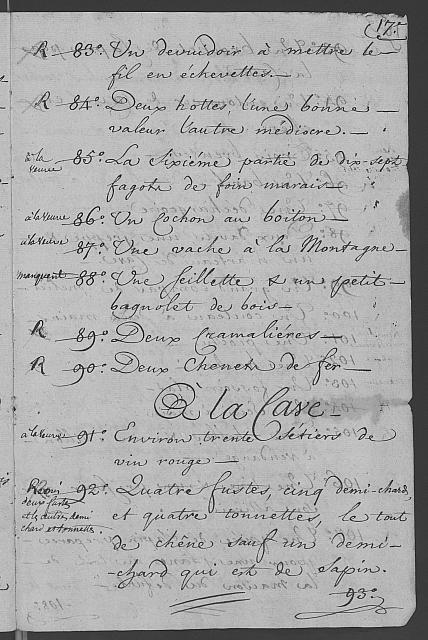 17.
R 83.° Un devuidoir à mettre le
fil en échevettes.—
R 84.° Deux hottes, l'une bonne
valeur l'autre médiocre.—
à la veuve 85.° La Sixiéme partie de dix-sept
fagots de foin marais—
à la veuve 86.° Un Cochon au boiton—
à la veuve 87.° Une vache à la Montagne—
manquent 88.° Une seillette & un petit
bagnolet de bois—
R 89.° Deux Cramaliéres—
R 90.° Deux Chenets de fer—
À la Cave
à la veuve 91.° Environ trente Sétiers de
vin rouge—
92.° Quatre fustes, cinq demi-chards,
deux fustes
et quatre tonnettes, le tout
chard et tonnettes
de chêne sauf un demi-
chard qui est de sapin.
93.°